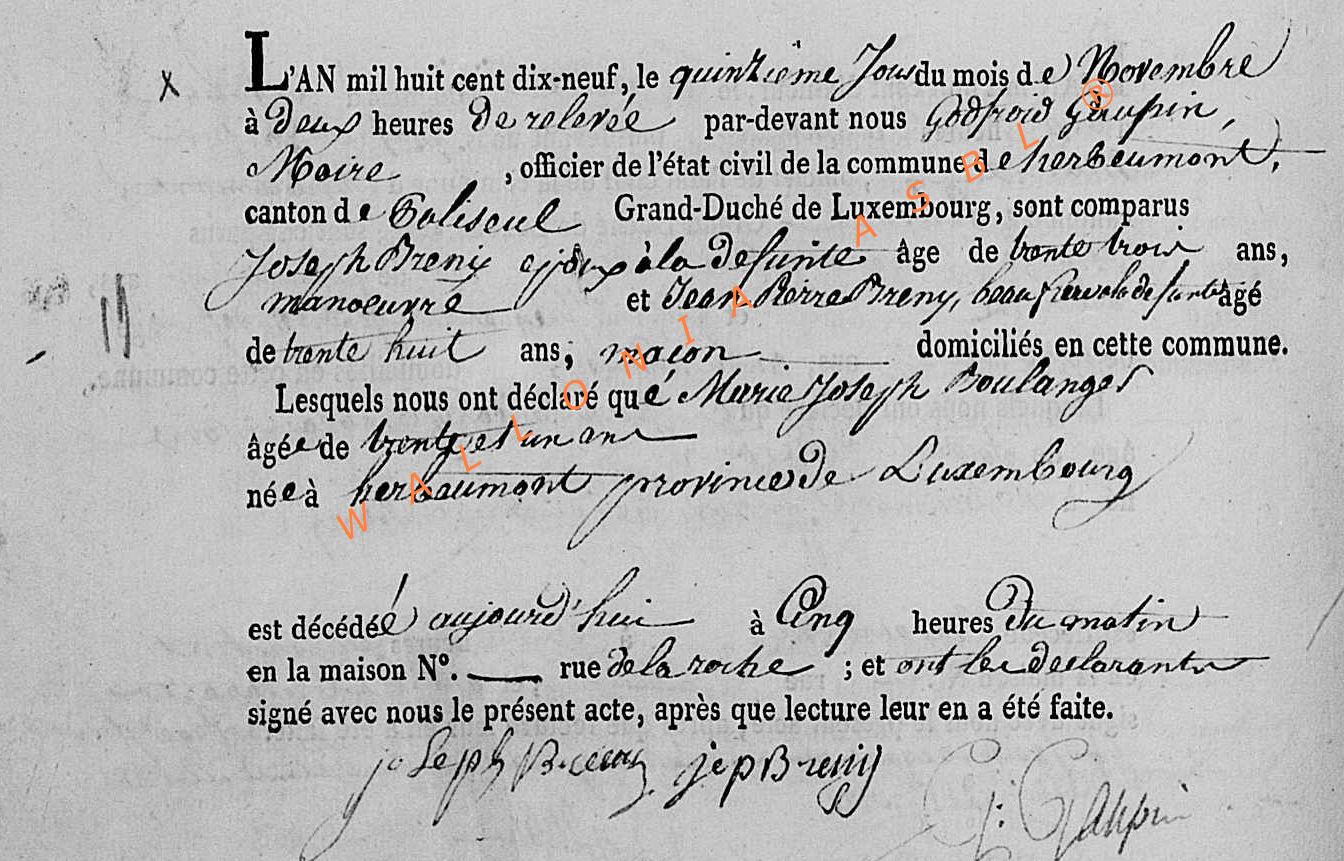 x
L'AN mil huit cent dix-neuf, le quinzieme Jour du mois de Novembre
à deux heures de relevée par-devant nous Godfroid Gaupin,
Maire, officier de l'état civil de la commune de herbeumont,
canton de Paliseul Grand-Duché de Luxembourg, sont comparus
Joseph Breny epoux à la defunte âge de trente trois ans,
manoeuvre et Jean Pierre Breny, beau frere de la defunte âgé
de trente huit ans, macon domiciliés en cette commune.
Lesquels nous ont déclaré que Marie Joseph Boulanger
âgée de trente et un ans
née à herbeumont province de Luxembourg
est décédée aujourd'hui à Cinq heures du matin
en la maison N°. rue de la roche ; et ont les declarants
signé avec nous le présent acte, après que lecture leur en a été faite.
joseph Breny jep Breny
G: Gaupin
WALLONIA ASBL ®